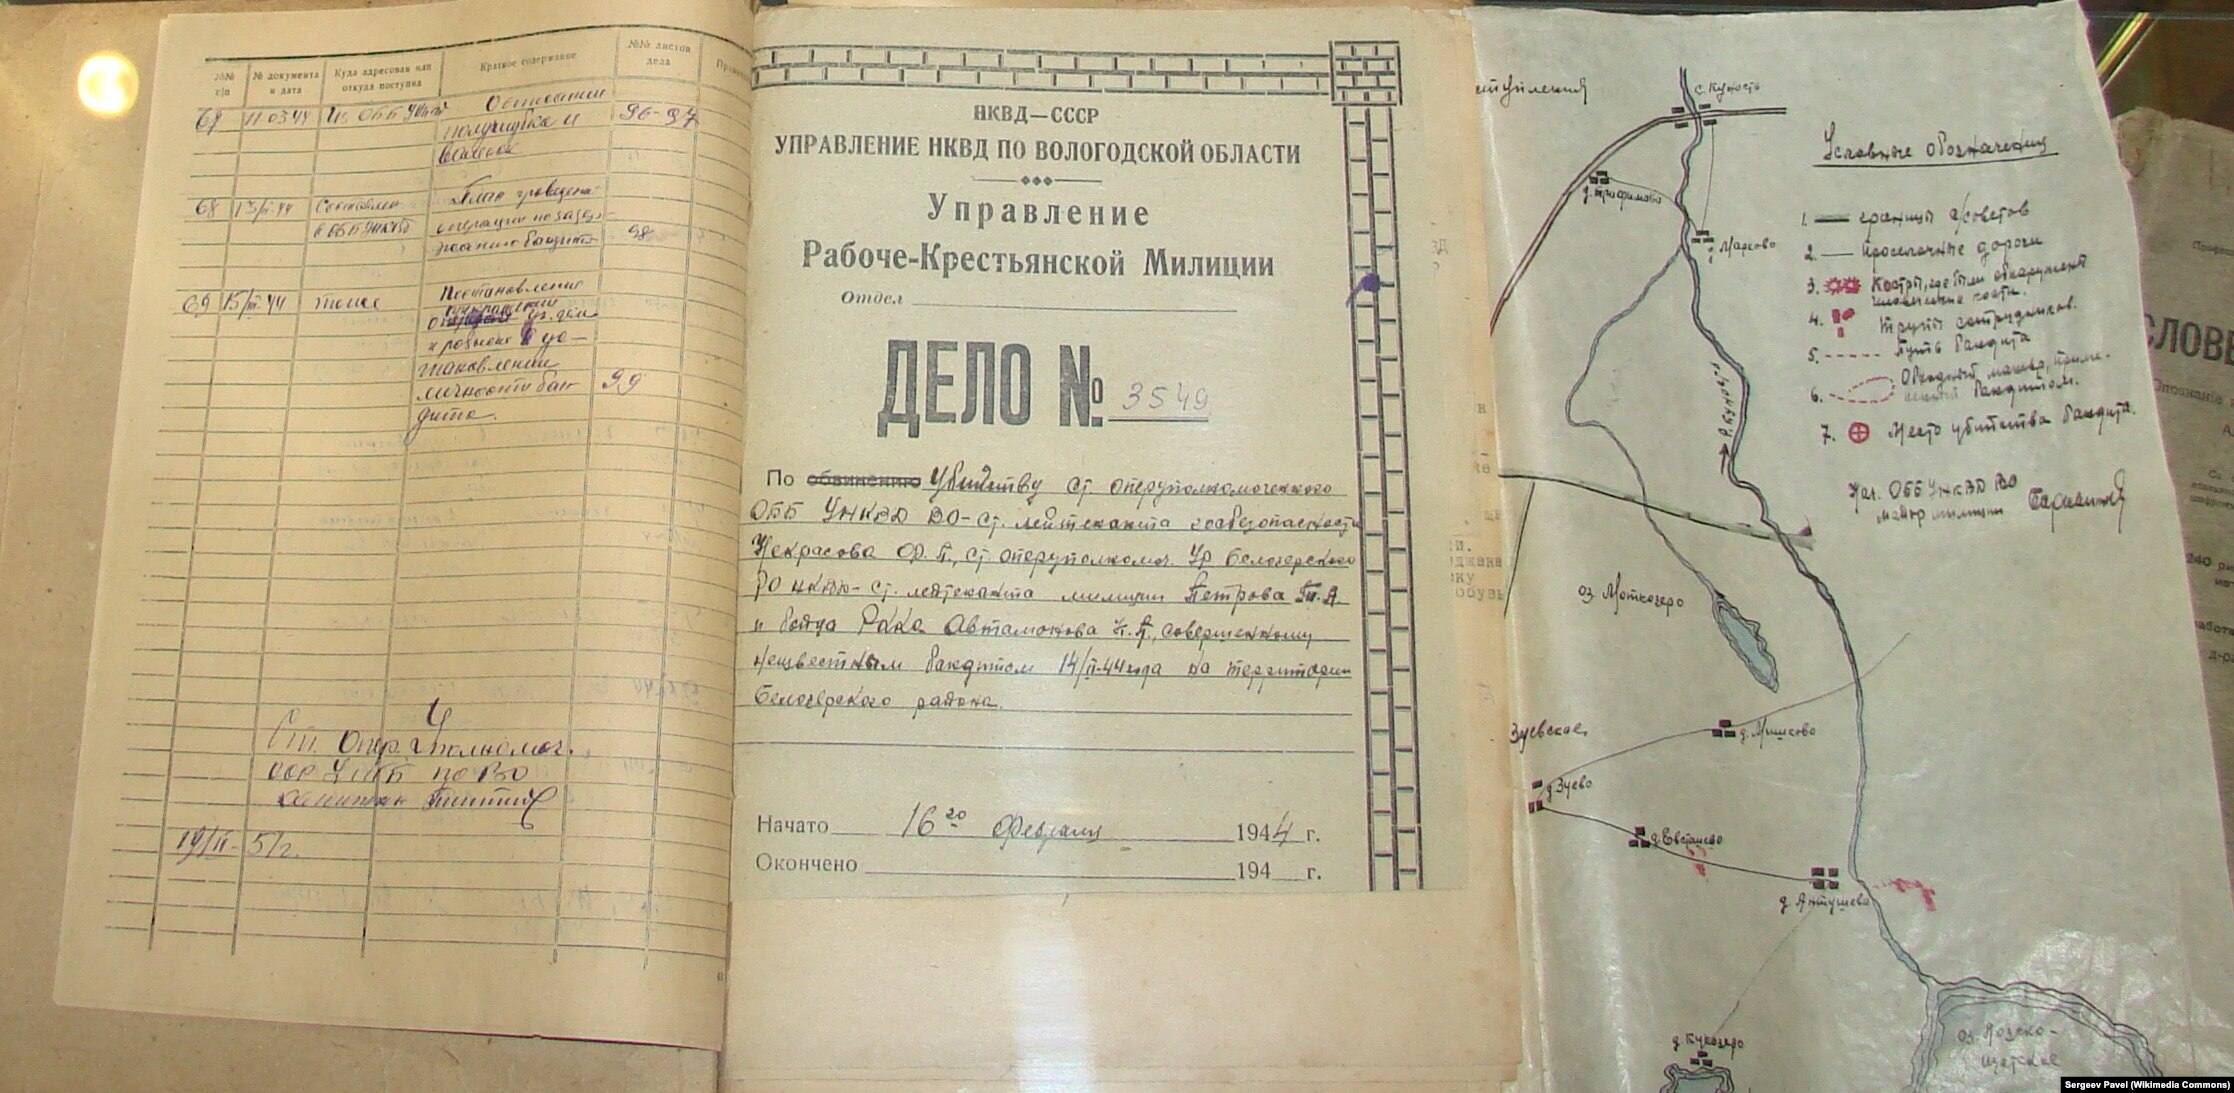 №№ п/п
№ документа и дата
Куда адресован или откуда поступил
Краткое содержание
№№ листов дела
67
11 03 44
Из ОББ
Описание
96-97
полушубка и
валенок
68
13/II-44
Составлен
План проведения
в ОББ УНКВД
операции по задер-
98
жанию бандита
69
15/II-44
тоже
Постановление
и розыске
и ус-
тановлении
личности бан-
99
дита.
Ст. Опер. Уполномоч.
по ВО
19/II-51г.
НКВД—СССР
УПРАВЛЕНИЕ НКВД ПО ВОЛОГОДСКОЙ ОБЛАСТИ
Управление
Рабоче-Крестьянской Милиции
Отдел
ДЕЛО №. 3549
По обвинению Убийству ст. оперуполномоченного
ОББ УНКВД ВО- ст. лейтенанта госбезопасности
Некрасова Ф.П., ст. оперуполномоч. УР Белозерского
РО НКВД- ст. лейтенанта милиции Петрова П.А.
и бойца РККА Автамонова совершенному
неизвестным бандитом 14/II-44 года на территории
Белозерского района.
Начато 16го февраля 1944 г.
Окончено 194 г.
с. Куность
Условные обозначения
д. Трофимово
д. Марково
1. границы с/советов
2. проселочные дороги
3. Костры, где были обнаружены
человеческие кости.
4. Трупы сотрудников.
5. Путь бандита
6. Обходный маневр, приме-
ненный бандитом.
7. Место убийства бандита.
р. Куность
Нач. ОББ УНКВД ВО
майор милиции
оз. Моткозеро
Зуевское
д. Мишково
д. Зуево
д. Евсташево
д. Антушево
д. Кукозеро
СЛОВЕ
Sergeev Pavel (Wikimedia Commons)